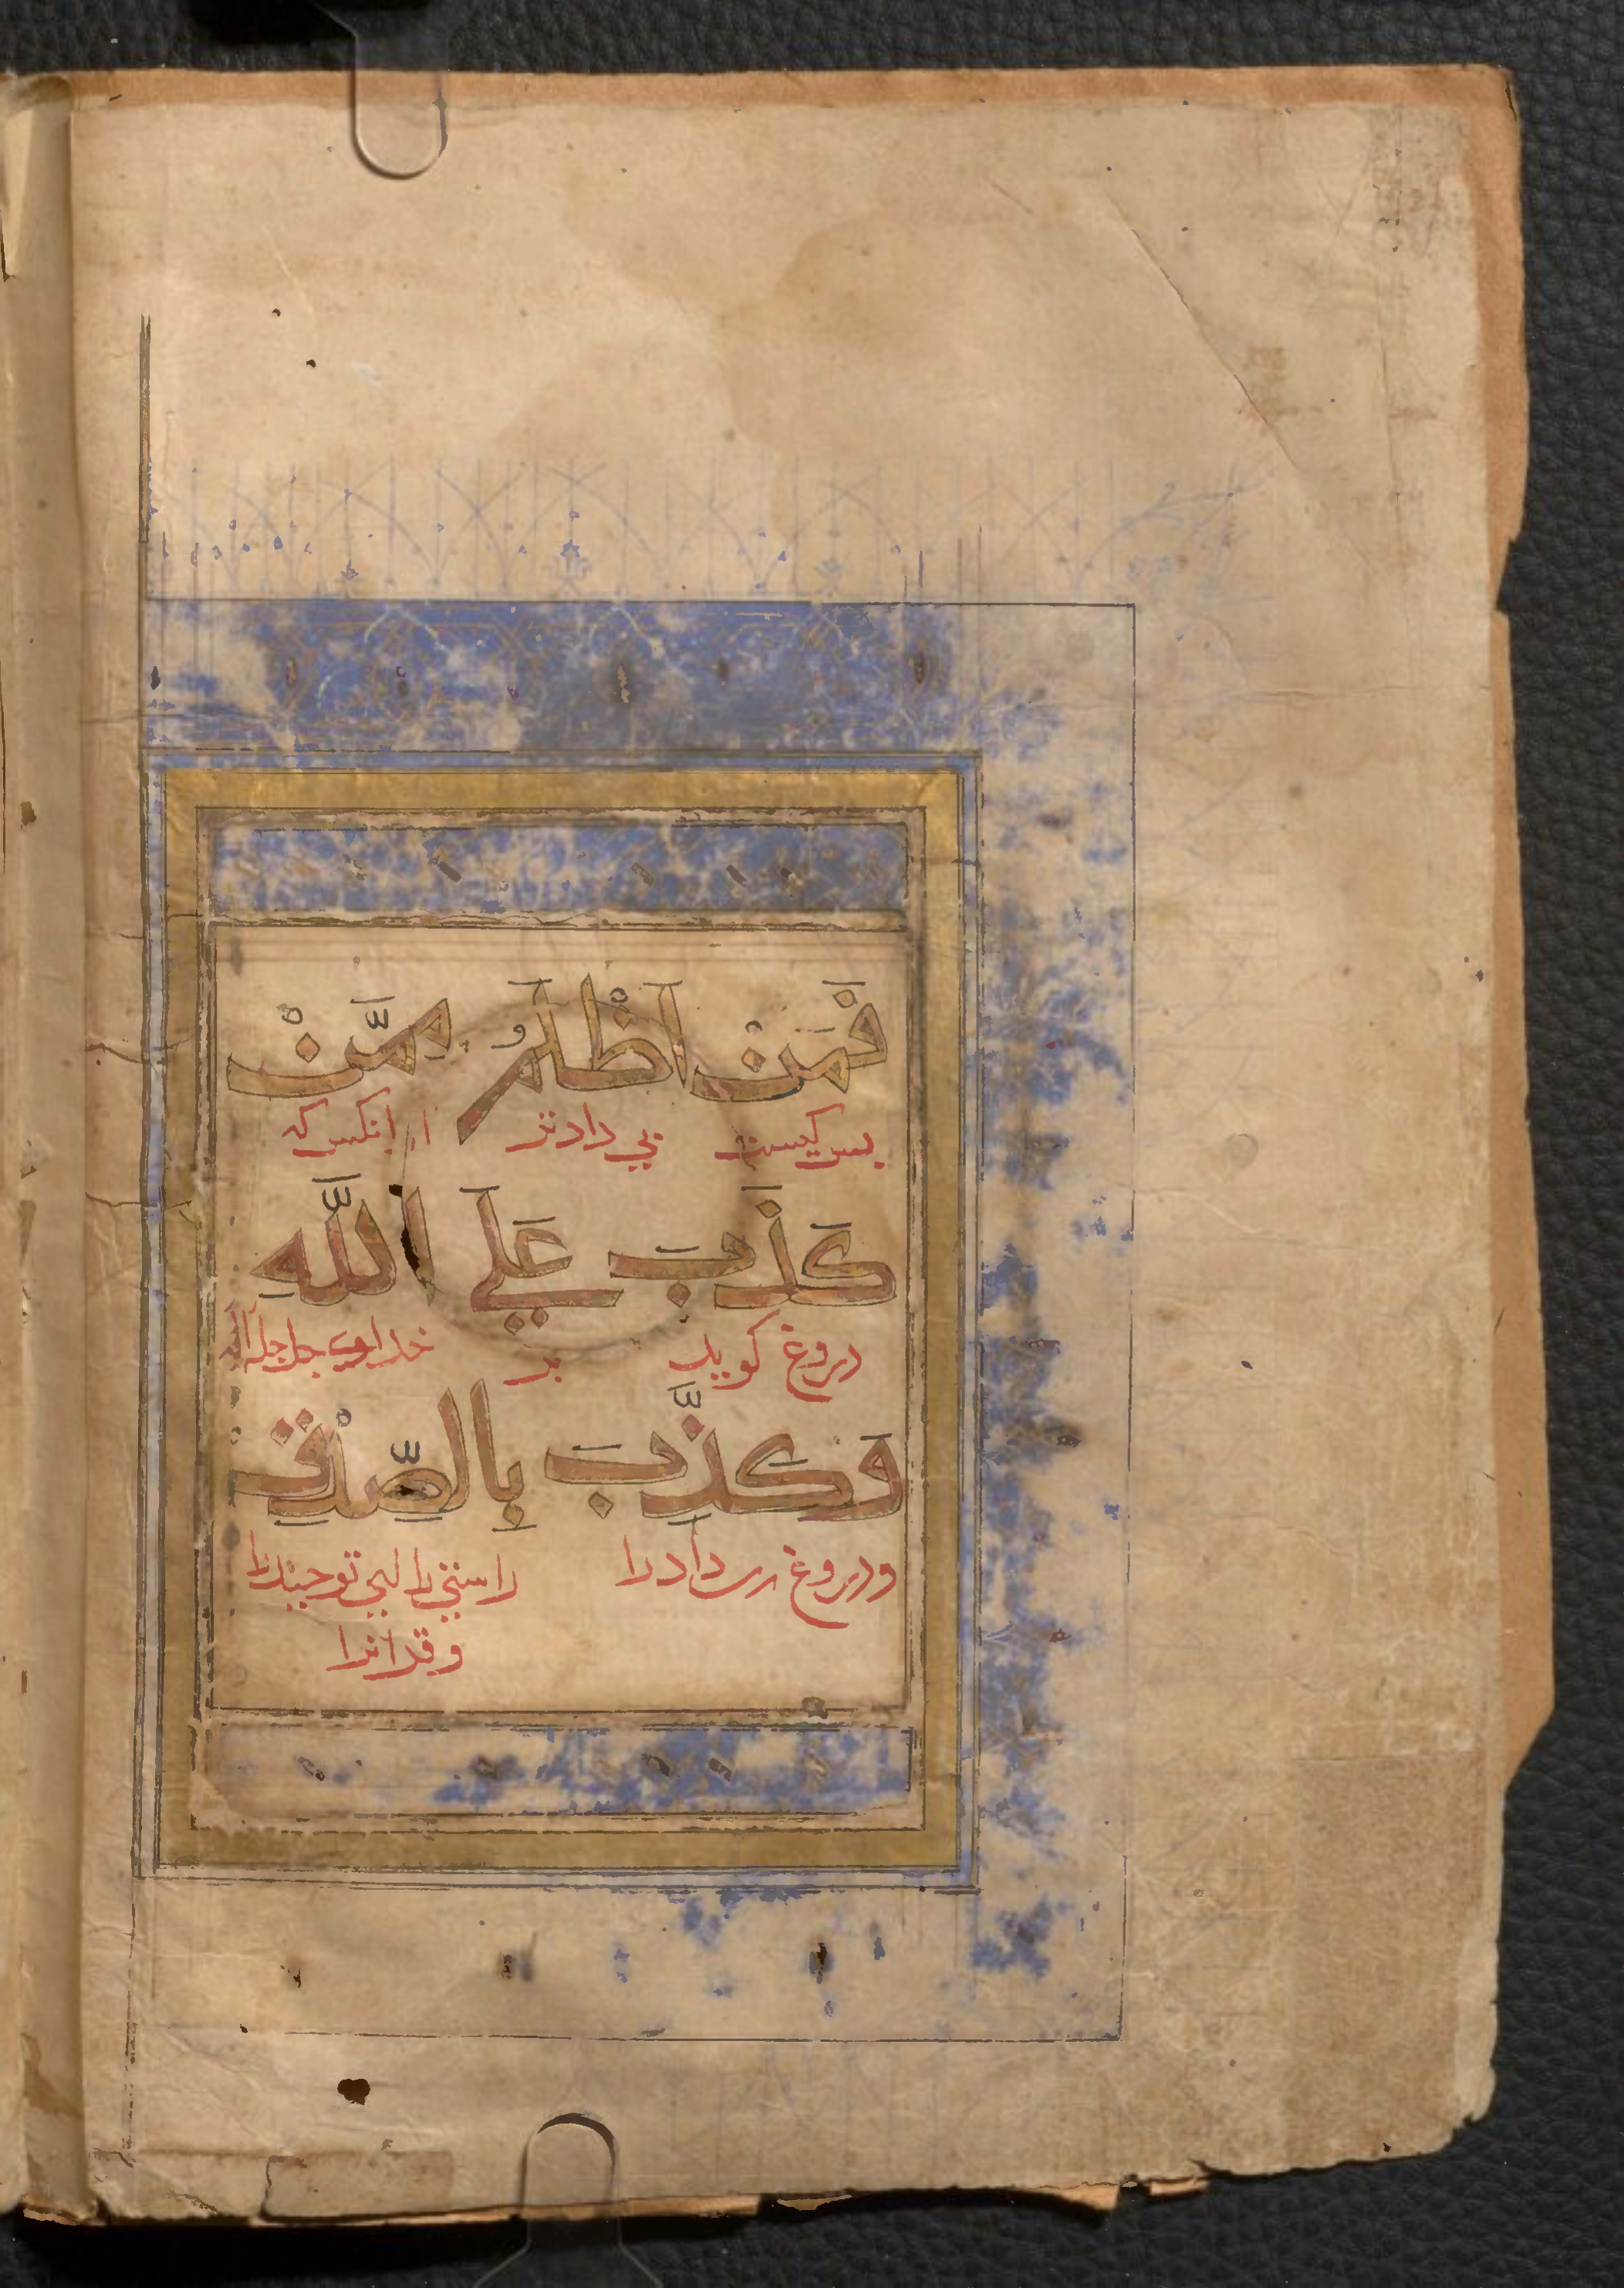 فَمَنْ اَظْلَمُ مِمَّنْ
بس کیست بی دادتر از انکس که
كَذَبَ عَلَی اللَّهِ
دروغ کوید بر خدای جل جلاله
وَكَذَّبَ بِالصِّدْقِ
ودروغ زن دارد را راستی را یعنی توحید را
و قرانرا